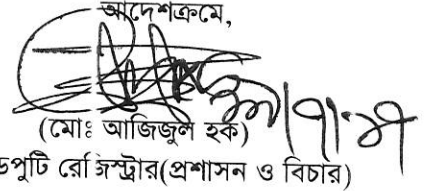 আদেশক্রমে,
(মোঃ আজিজুল হক)
ডেপুটি রেজিস্ট্রার(প্রশাসন ও বিচার)